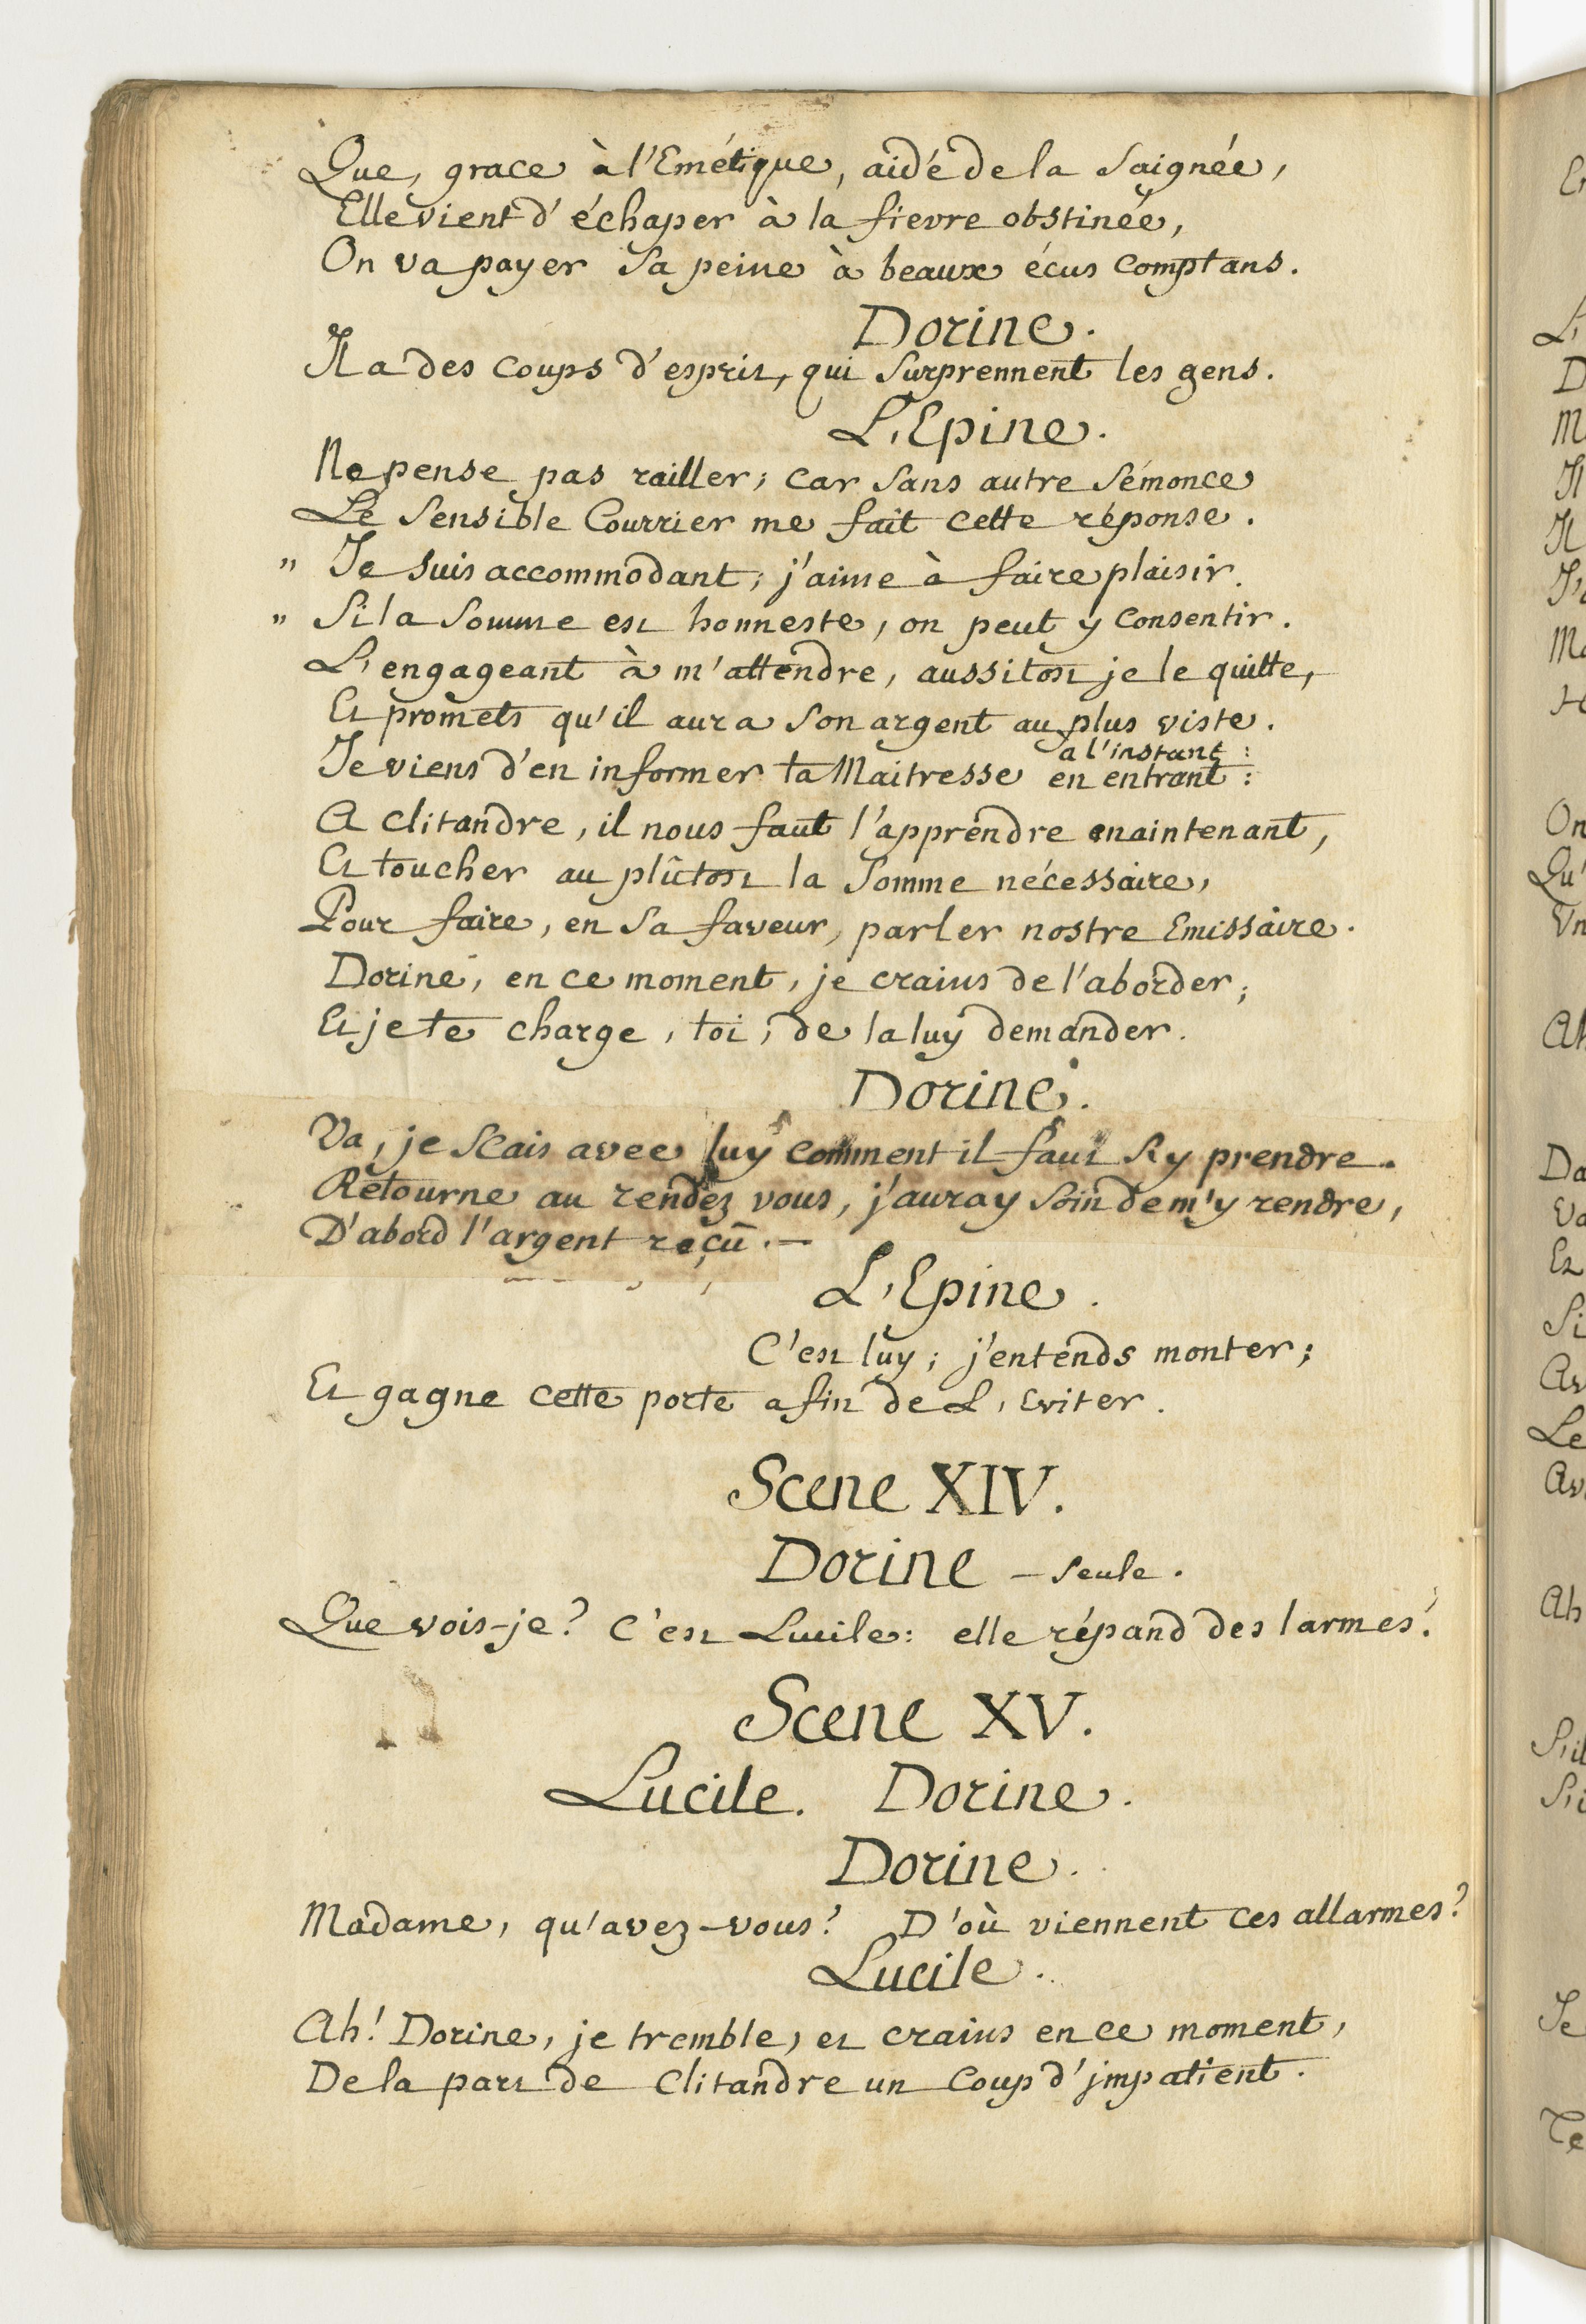 Que, grace à l'Emétique, aidé de la Saignée,
Elle vient d'échaper à la fievre obstinée,
On va payer sa peine à beaux écus comptans.
Dorine.
Il a des coups d'esprit, qui surprennent les gens.
L'Epine.
Ne pense pas railler; car sans autre sémonce
Le sensible Courrier me fait cette réponse.
" Je suis accommodant; j'aime à faire plaisir.
" Si la somme est honneste, on peut y consentir.
L'engageant à m'attendre, aussitost je le quitte,
Et promets qu'il aura son argent au plus viste.
a l'instant :
Je viens d'en informer ta Maitresse en entrant :
A Clitandre, il nous faut l'apprendre maintenant,
Et toucher au plûtost la somme nécessaire,
Pour faire, en sa faveur, parler nostre Emissaire.
Dorine, en ce moment, je crains de l'aborder;
Et je te charge, toi, de la luy demander.
Dorine.
Va, je scais avec luy comment il faut s'y prendre.
Retourne au rendez vous, j'auray soin de m'y rendre,
D'abord l'argent reçû. —
L'Epine.
C'est luy; j'entends monter;
Et gagne cette porte afin de L'Eviter.
Scene XIV.
Dorine – seule.
Que vois-je? C'est Lucile: elle répand des larmes!
Scene XV.
Lucile. Dorine.
Dorine.
Madame, qu'avez-vous? D'où viennent ces allarmes?
Lucile.
Ah! Dorine, je tremble, et crains en ce moment,
De la part de Clitandre un Coup d'jmpatient.